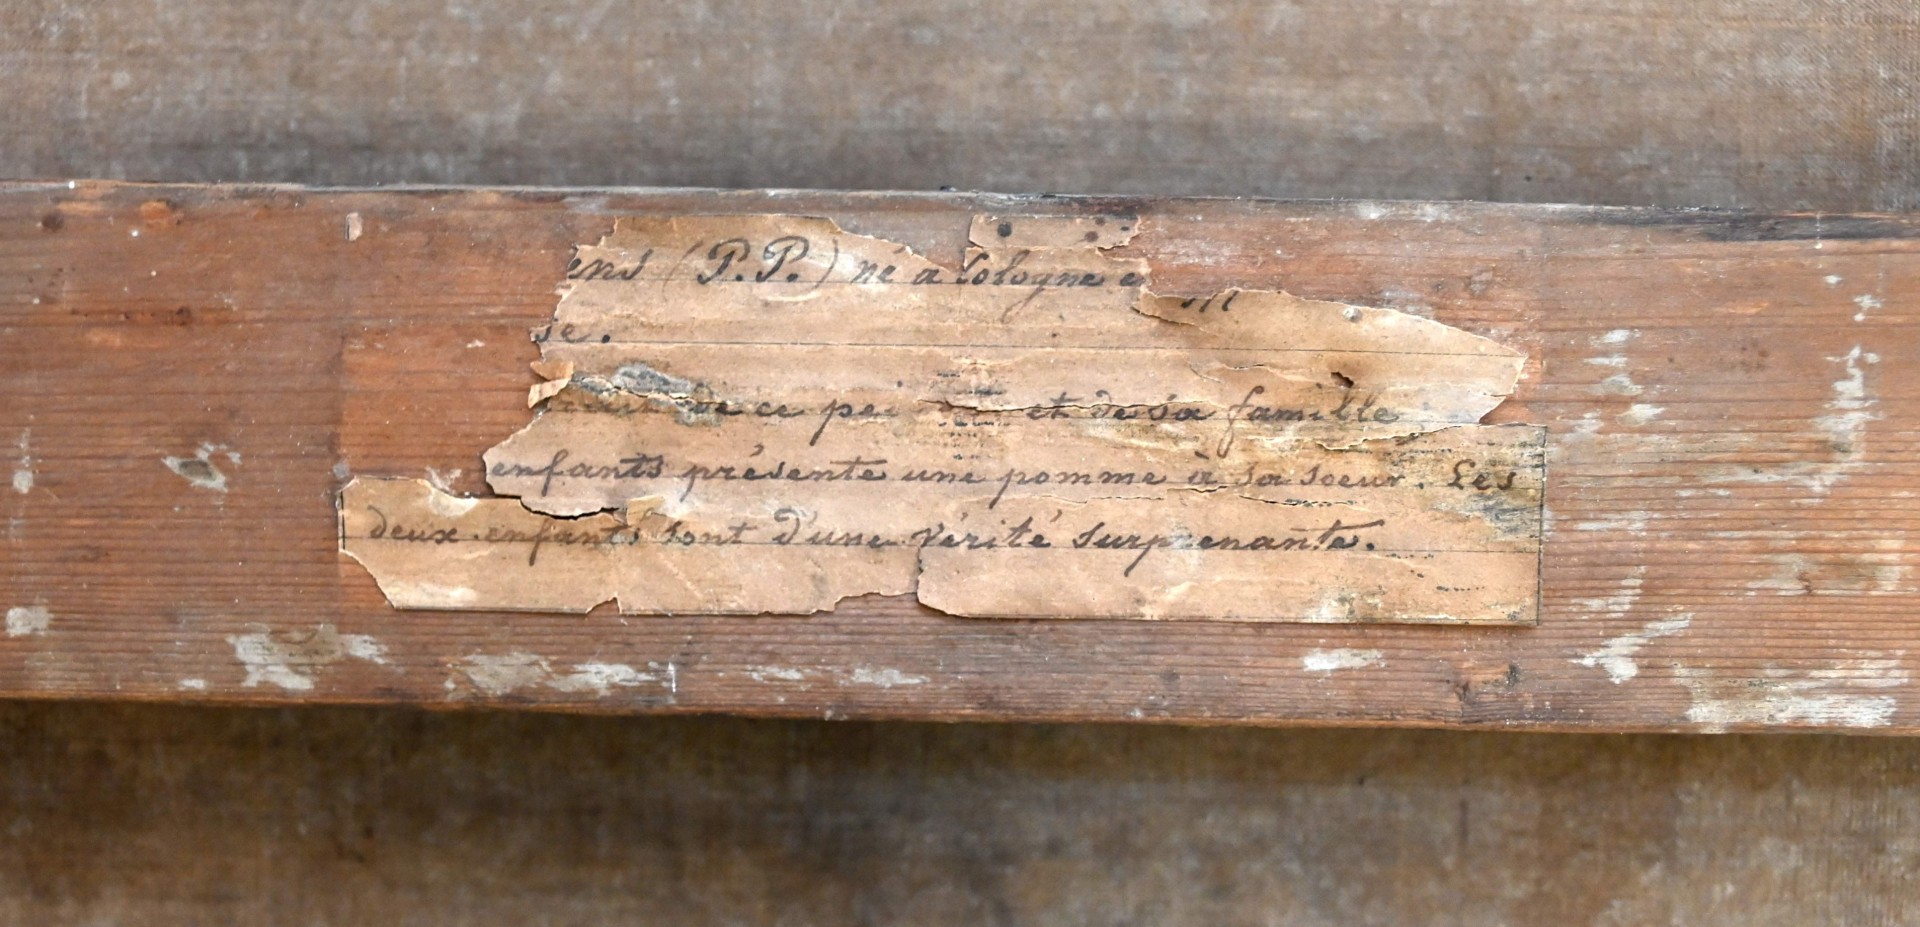 ens (P.P.) né a Cologne e
se.
de ce et de sa famille
enfants présente une pomme à sa soeur. Les
deux enfants sont d'une vérité surprenante.